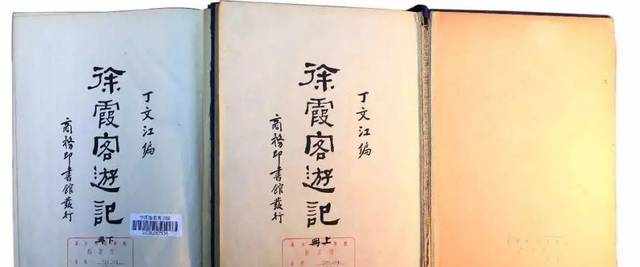 丁文江編
徐霞客遊記
商務印書館發行
下冊
丁文江編
徐霞客遊記
商務印書館發行
上冊